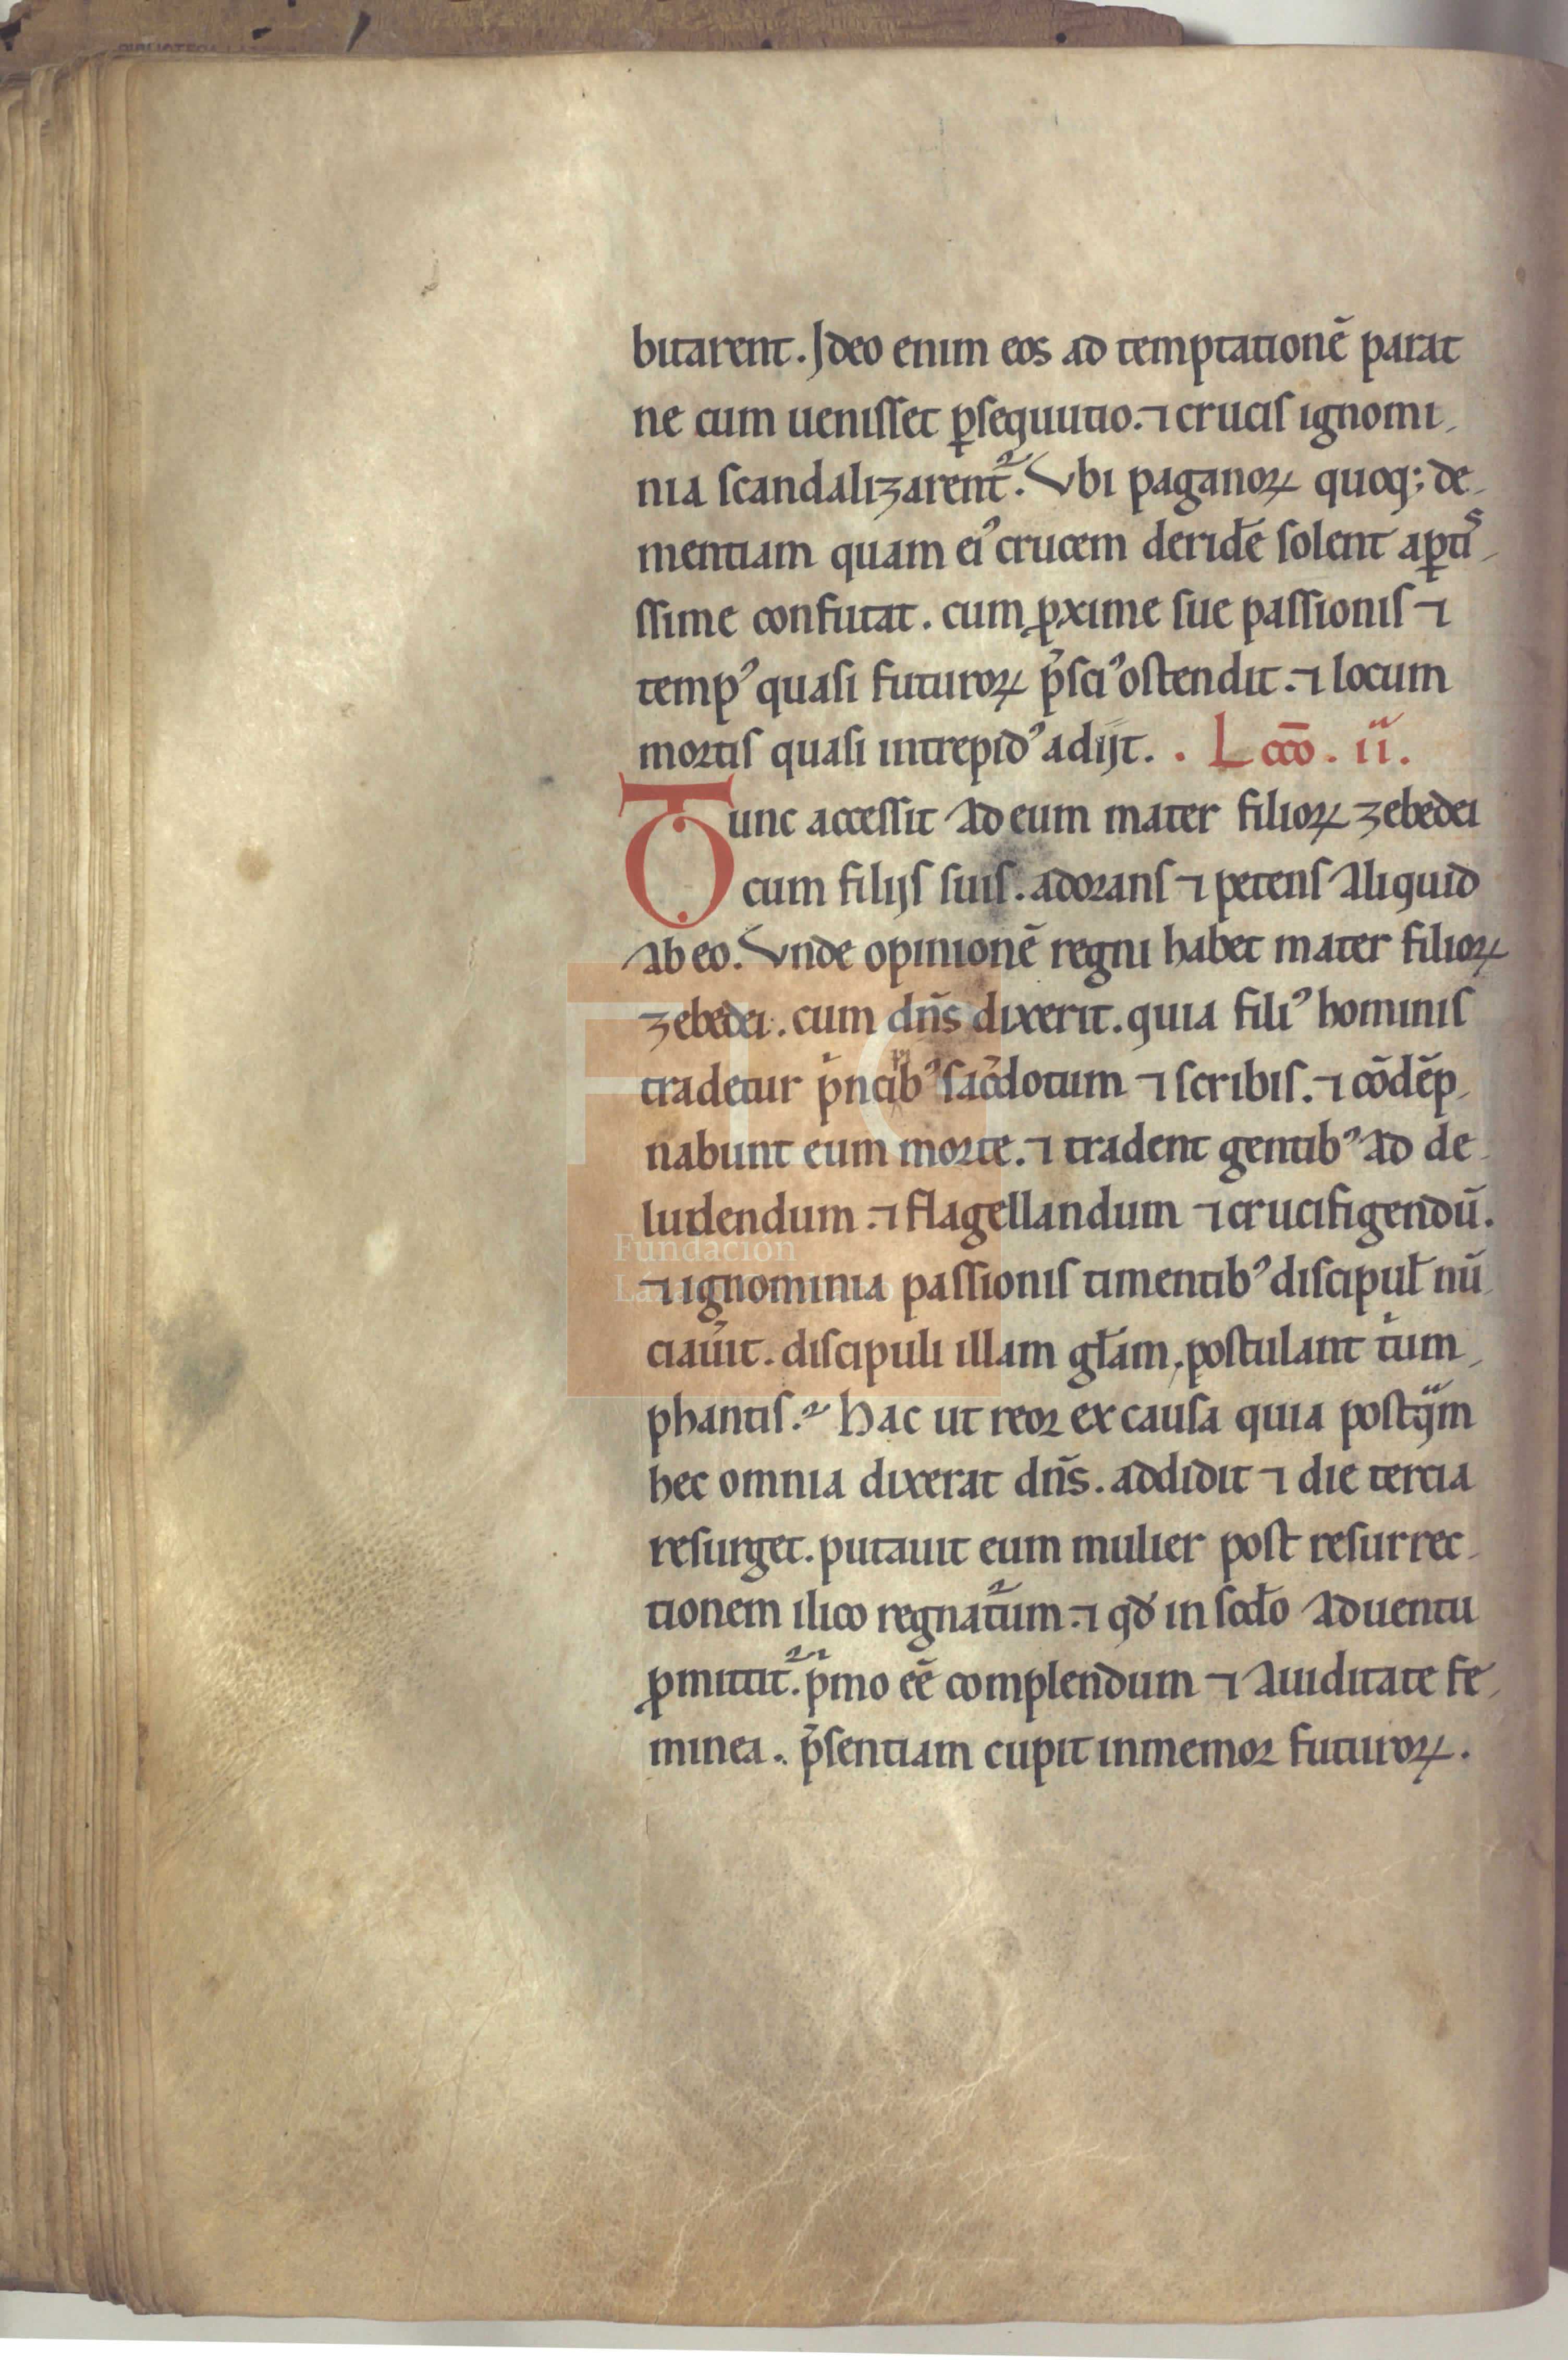 bitarent. Jdeo enim eos ad temptationē parat
ne cum ueniſſet ꝑſequutio. ⁊ cruciſ ignomi-
nia ſcandalizarent᷑. Vbi paganoꝝ quoq; de-
mentiam quam eiꝰ crucem deridēe ſolent aꝑtiˢ-
ſſime confutat. cum ꝓxime ſue paſſioniſ ⁊
tempꝰ quaſi futuroꝝ p̄ſciꝰ oſtendit. ⁊ locum
moꝛtiſ quaſi intrepidꝰ adijt. . Lcc̄o. ii.
Tunc acceſſit ad eum mater filioꝝ zebedei
cum filijſ ſuiſ. adoꝛanſ ⁊ petenſ aliquid
ab eo. Vnde opinionē regni habet mater filioꝝ
zebedei. cum dn̄s dixerit. quia filiꝰ hominiſ
tradetur pͥncibꝰ ſac̄dotum ⁊ ſcribiſ. ⁊ cōdēp-
nabunt eum moꝛte. ⁊ tradent gentibꝰ ad de-
ludendum ⁊ flagellandum ⁊ crucifigendū.
⁊ ignominia paſſioniſ timentibꝰ diſcipuł nū-
ciau̾it. diſcipuli illam gł̄am. poſtulant tͥum-
phantiſ. Hac ut reoꝛ ex causa quia poſtqᷓm
hec omnia dixerat dn̄s. addidit ⁊ die tercia
reſurget. putauit eum mulier poſt reſurrec-
tionem ilico regnat᷑um ⁊ qđ in ſcđo aduentu
ꝓmittit᷑. pͥmo eē complendum ⁊ auiditate fe-
minea. p̄ſentiam cupit inmemoꝛ futuroꝝ.
Fundación